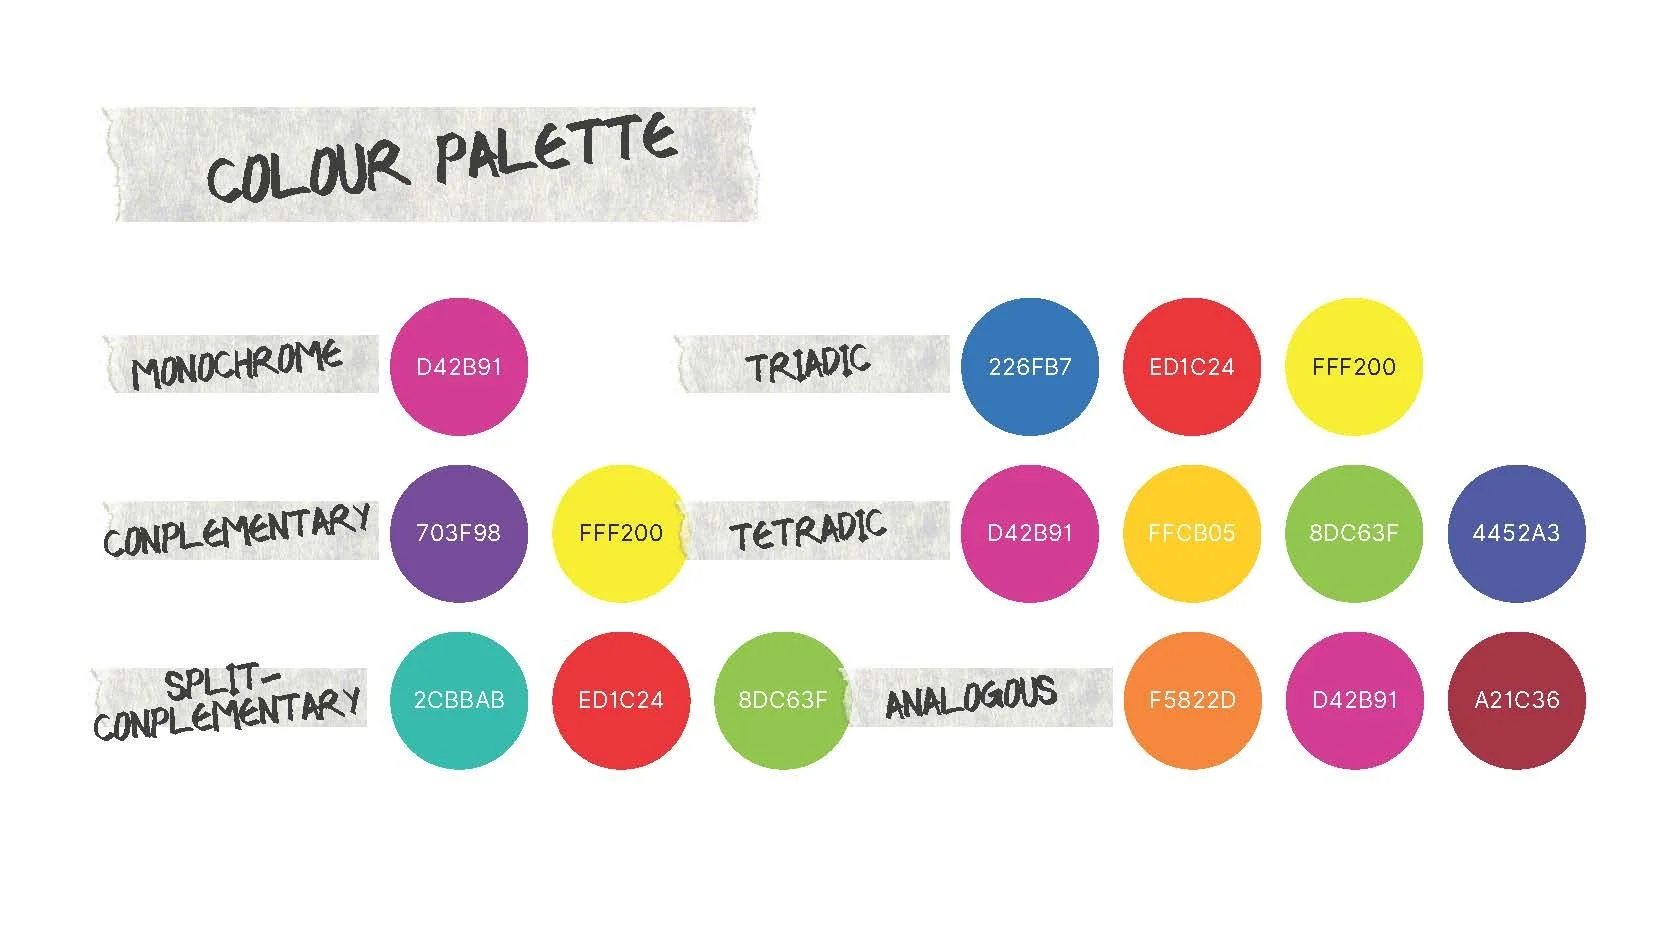 COLOUR PALETTE
MONOCHROME
D42B91
TRIADIC
226FB7
ED1C24
FFF200
CONPLEMENTARY
703F98
FFF200
TETRADIC
D42B91
FFCB05
8DC63F
4452A3
SPLIT-
CONPLEMENTARY
2CBBAB
ED1C24
8DC63F
ANALOGOUS
F5822D
D42B91
A21C36